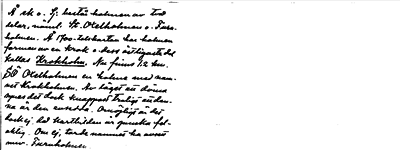 Å sk. o. Gj. består holmen av två
delar, näml. St. Oxelholmen o. Furu-
holmen. Å 1700-talskartan har holmen
formen av en krok o. dess östligaste del
kallas Krokholm. Nu finns 1,2 km
SÖ Oxelholmen en holme med nam-
net Krokholmen. Av läget att döma
synes det dock knappast troligt att den-
na är den avsedda. Omöjligt är det
dock ej, då kartbilden är ganska fel-
aktig. Om ej, torde namnet ha avsett
nuv. Furuholmen.